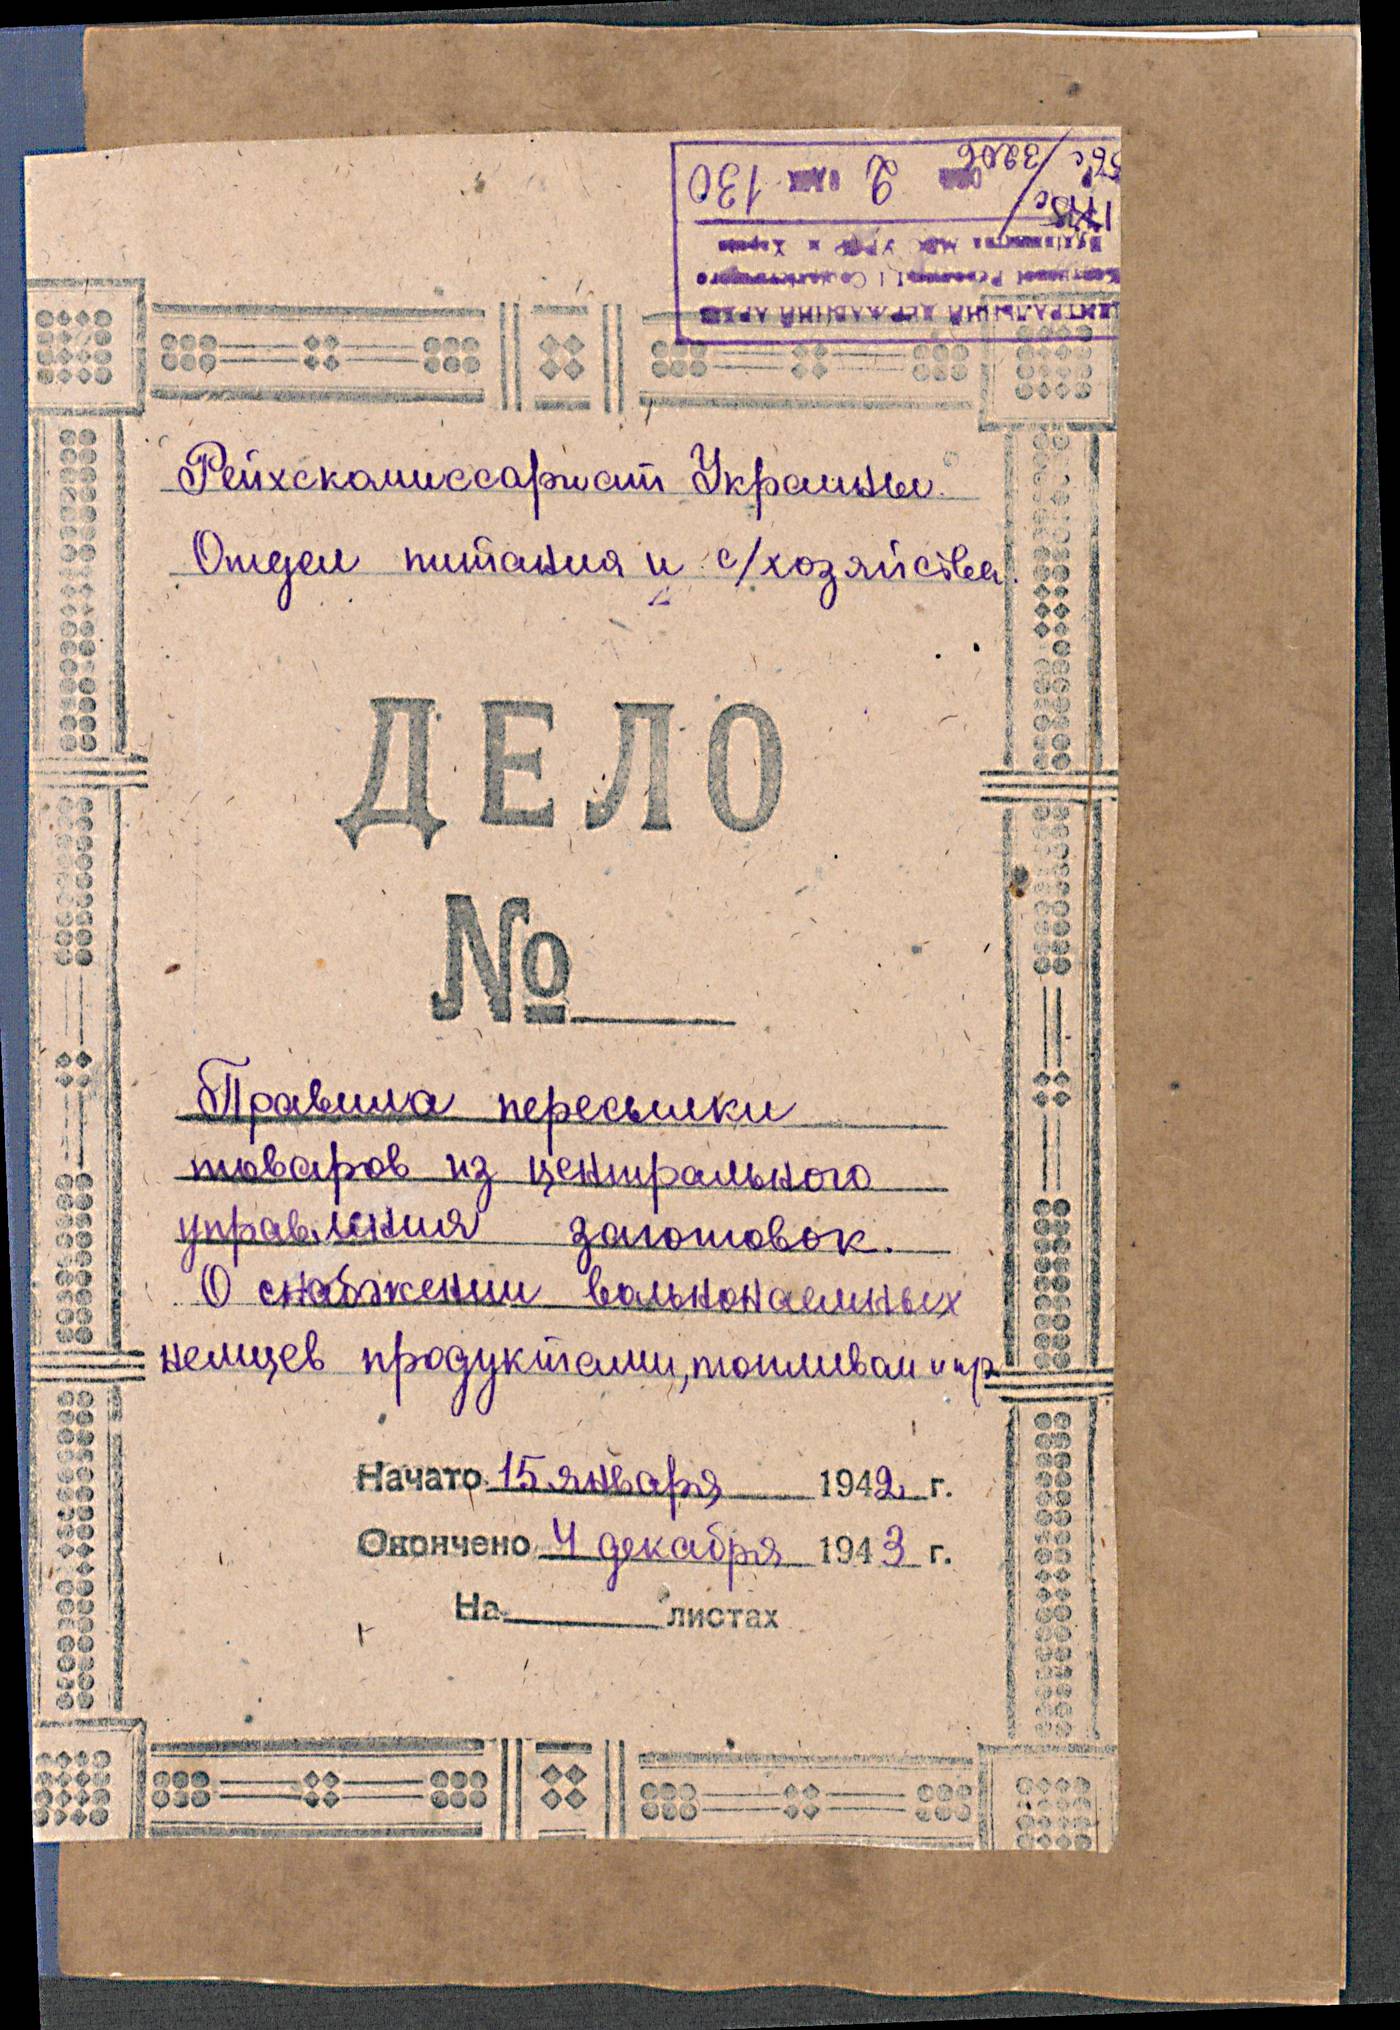 ЦЕНТРАЛЬНИЙ ДЕРЖАВНИЙ АРХІВ
2 130
3206
Рейхскомиссариат Украины.
Отдел питания и с/хозяйства.
ДЕЛО
№
Правила пересылки
товаров из центрального
управления заготовок.
О снабжении вольнонаемных
немцев продуктами, топливом и пр
Начато 15 января 1942 г.
Окончено 4 декабря 1943 г.
На листах